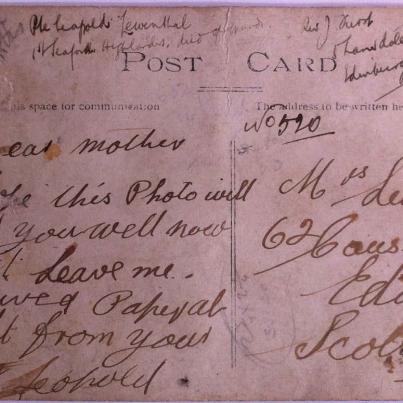 Pte Leopold Lewenthal
Seaforth Highlanders, died of wounds
Rev J
Lansdale
Edinburgh
POST CARD
is space for communication
The address to be written he
No 520
ear mother
this Photo will
you well now
Leave me.
Paper at
t from your
Leopold
Mrs Le
62 Caus
Edi
Scotl